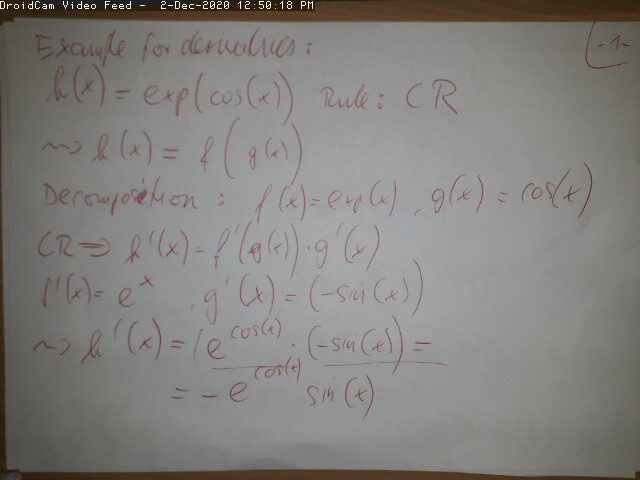 DroidCam Video Feed - 2-Dec-2020 12:50:18 PM
-1-
Example for derivatives:
h(x) = exp(cos(x)) Rule: CR
~> h(x) = f(g(x))
Decomposition: f(x)=exp(x), g(x) = cos(x)
CR => h'(x) = f'(g(x))·g'(x)
f'(x) = e^x, g'(x) = (-sin(x))
~> h'(x) = (e^cos(x)·(-sin(x)) =
= -e^cos(x) sin(x)